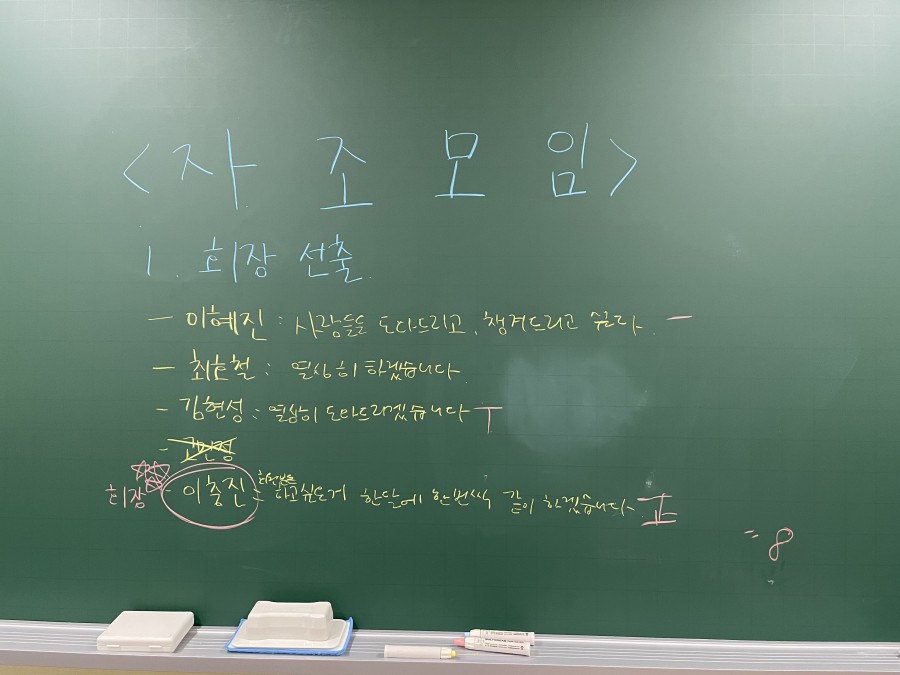 <자조모임>
1. 회장 선출
- 이혜진 : 사람들을 도와드리고, 챙겨드리고 싶다. 一
- 최호철 : 열심히 하겠습니다
- 김현성 : 열심히 도와드리겠습니다 丅
-
회장 - 이홍진 : 회원분들 하고싶은게 한달에 한번씩 같이 하겠습니다 正
= 8